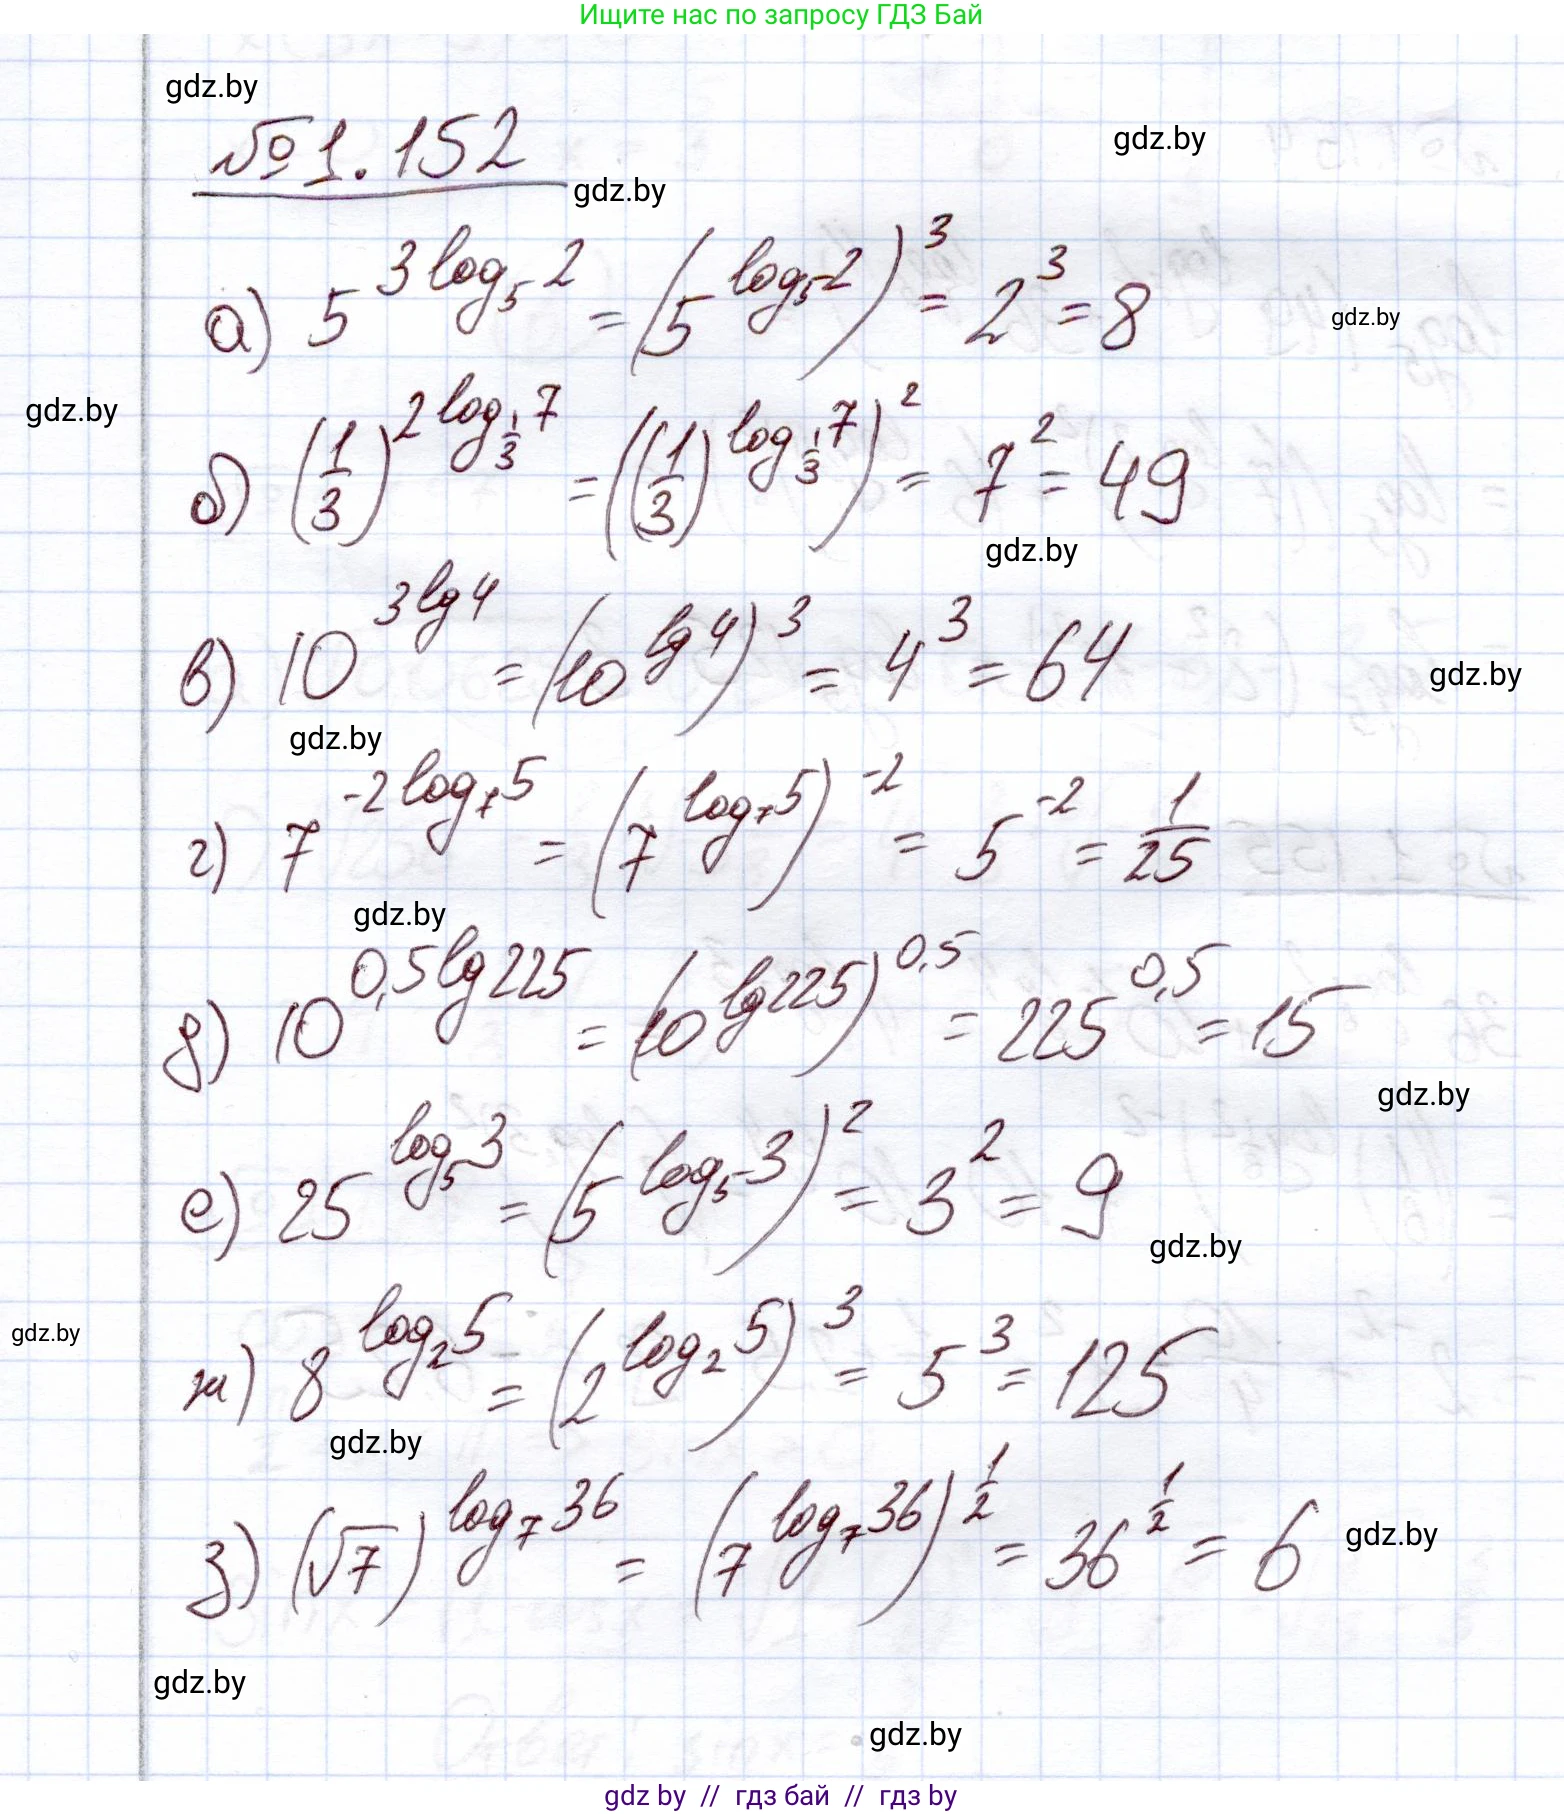 Ищите нас по запросу ГДЗ Бай
gdz.by
№ 1.152
gdz.by
gdz.by
а) 5^{3 log_5 2} = (5^{log_5 2})^3 = 2^3 = 8
gdz.by
gdz.by
б) (1/3)^{2 log_{1/3} 7} = ((1/3)^{log_{1/3} 7})^2 = 7^2 = 49
gdz.by
в) 10^{3 lg 4} = (10^{lg 4})^3 = 4^3 = 64
gdz.by
gdz.by
г) 7^{-2 log_7 5} = (7^{log_7 5})^{-2} = 5^{-2} = 1/25
gdz.by
д) 10^{0,5 lg 225} = (10^{lg 225})^{0,5} = 225^{0,5} = 15
gdz.by
е) 25^{log_5 3} = (5^{log_5 3})^2 = 3^2 = 9
gdz.by
gdz.by
ж) 8^{log_2 5} = (2^{log_2 5})^3 = 5^3 = 125
gdz.by
з) (√7)^{log_7 36} = (7^{log_7 36})^{1/2} = 36^{1/2} = 6
gdz.by
gdz.by
gdz.by
gdz by // гдз бай // гдз by